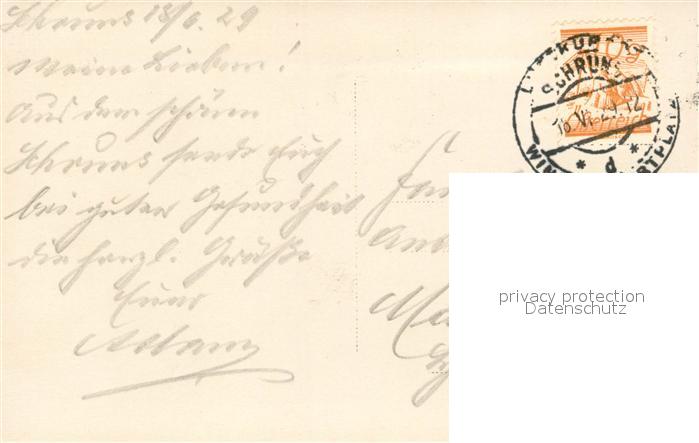 Schruns 18/6. 29
Meine Lieben!
Aus dem schönen
Schruns sende Euch
bei guter Gesundheit
die herzl. Grüße
Euer
10g
LUFTKURORT
SCHRUNS
Österreich
d
WIN RTPLATZ
Fam
privacy protection
Datenschutz